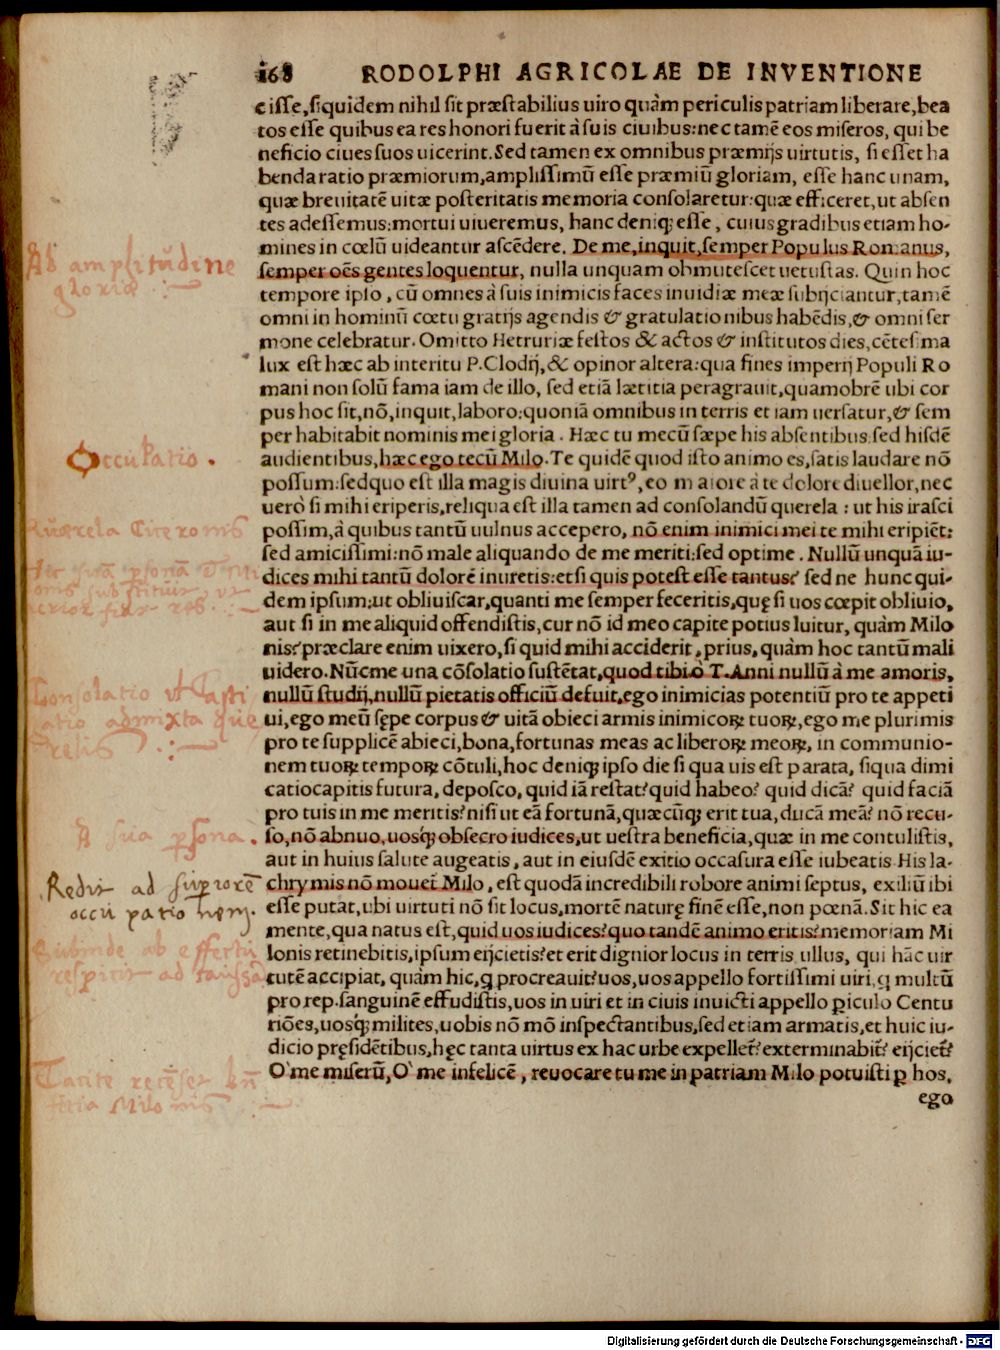 168 RODOLPHI AGRICOLAE DE INVENTIONE
cisse, siquidem nihil sit præstabilius uiro quàm periculis patriam liberare, bea
tos esse quibus ea res honori fuerit à suis ciuibus: nec tamē eos miseros, qui be
neficio ciues suos uicerint. Sed tamen ex omnibus præmijs uirtutis, si esset ha
benda ratio præmiorum, amplissimū esse præmiū gloriam, esse hanc unam,
quæ breuitatē uitæ posteritatis memoria consolaretur: quæ efficeret, ut absen
tes adessemus: mortui uiueremus, hanc deniq; esse, cuius gradibus etiam ho-
mines in cœlū uideantur ascēdere. De me, inquit, semper Populus Romanus,
semper oēs gentes loquentur, nulla unquam obmutescet uetustas. Quin hoc
tempore ipso, cū omnes à suis inimicis faces inuidiæ meæ subijciantur, tamē
omni in hominū cœtu gratijs agendis & gratulationibus habēdis, & omni ser
mone celebratur. Omitto Hetruriæ festos & actos & institutos dies, cētesima
lux est hæc ab interitu P. Clodij, & opinor altera: qua fines imperij Populi Ro
mani non solū fama iam de illo, sed etiā lætitia peragrauit, quamobrē ubi cor
pus hoc sit, nō, inquit, laboro: quoniā omnibus in terris et iam uersatur, & sem
per habitabit nominis mei gloria. Hæc tu mecū sæpe his absentibus: sed hisdē
audientibus, hæc ego tecū Milo. Te quidē quod isto animo es, satis laudare nō
possum: sed quo est illa magis diuina uirtꝰ, eo maiore à te dolore diuellor, nec
uerò si mihi eriperis, reliqua est illa tamen ad consolandū querela: ut his irasci
possim, à quibus tantū uulnus accepero, nō enim inimici mei te mihi eripiēt:
sed amicissimi: nō male aliquando de me meriti: sed optime. Nullū unquā iu-
dices mihi tantū dolorē inuretis: etsi quis potest esse tantus? sed ne hunc qui-
dem ipsum: ut obliuiscar, quanti me semper feceritis, quę si uos cœpit obliuio,
aut si in me aliquid offendistis, cur nō id meo capite potius luitur, quàm Milo
nis? præclare enim uixero, si quid mihi acciderit, prius, quàm hoc tantū mali
uidero. Nūc me una cōsolatio sustētat, quod tibi ò T. Anni nullū à me amoris,
nullū studij, nullū pietatis officiū defuit, ego inimicias potentiū pro te appeti
ui, ego meū sępe corpus & uitā obieci armis inimicoꝝ tuoꝝ, ego me plurimis
pro te supplicē abieci, bona, fortunas meas ac liberoꝝ meoꝝ, in communio-
nem tuoꝝ tempoꝝ cōtuli, hoc deniq; ipso die si qua uis est parata, siqua dimi
catio capitis futura, deposco, quid iā restat? quid habeo? quid dicā? quid faciā
pro tuis in me meritis? nisi ut eā fortunā, quæcūq; erit tua, ducā meā? nō recu-
so, nō abnuo, uosq; obsecro iudices, ut uestra beneficia, quæ in me contulistis,
aut in huius salute augeatis, aut in eiusdē exitio occasura esse iubeatis His la-
chrymis nō mouet Milo, est quodā incredibili robore animi septus, exiliū ibi
esse putat, ubi uirtuti nō sit locus, mortē naturę finē esse, non pœnā. Sit hic ea
mente, qua natus est, quid uos iudices? quo tandē animo eritis? memoriam Mi
lonis retinebitis, ipsum eijcietis? et erit dignior locus in terris ullus, qui hāc uir
tutē accipiat, quàm hic, q̨ procreauit? uos, uos appello fortissimi uiri, q̨ multū
pro rep. sanguinē effudistis, uos in uiri et in ciuis inuicti appello ꝑiculo Centu
riōes, uosq; milites, uobis nō mō inspectantibus, sed etiam armatis, et huic iu-
dicio pręsidētibus, hęc tanta uirtus ex hac urbe expellet? exterminabit? eijciet?
O' me miserū, O' me infelicē, reuocare tu me in patriam Milo potuisti ꝑ hos,
ego
Ab amplitudine
gloriæ
Occupatio.
Querela Ciceronis
Hic suā ꝑsonā
Consolatio
admixta que
relis
A sua ꝑsona.
Redit ad superiorē
occupationem.
Subinde ab
respicit ad
Tacite recēset
Milonis
Digitalisierung gefördert durch die Deutsche Forschungsgemeinschaft - DFG